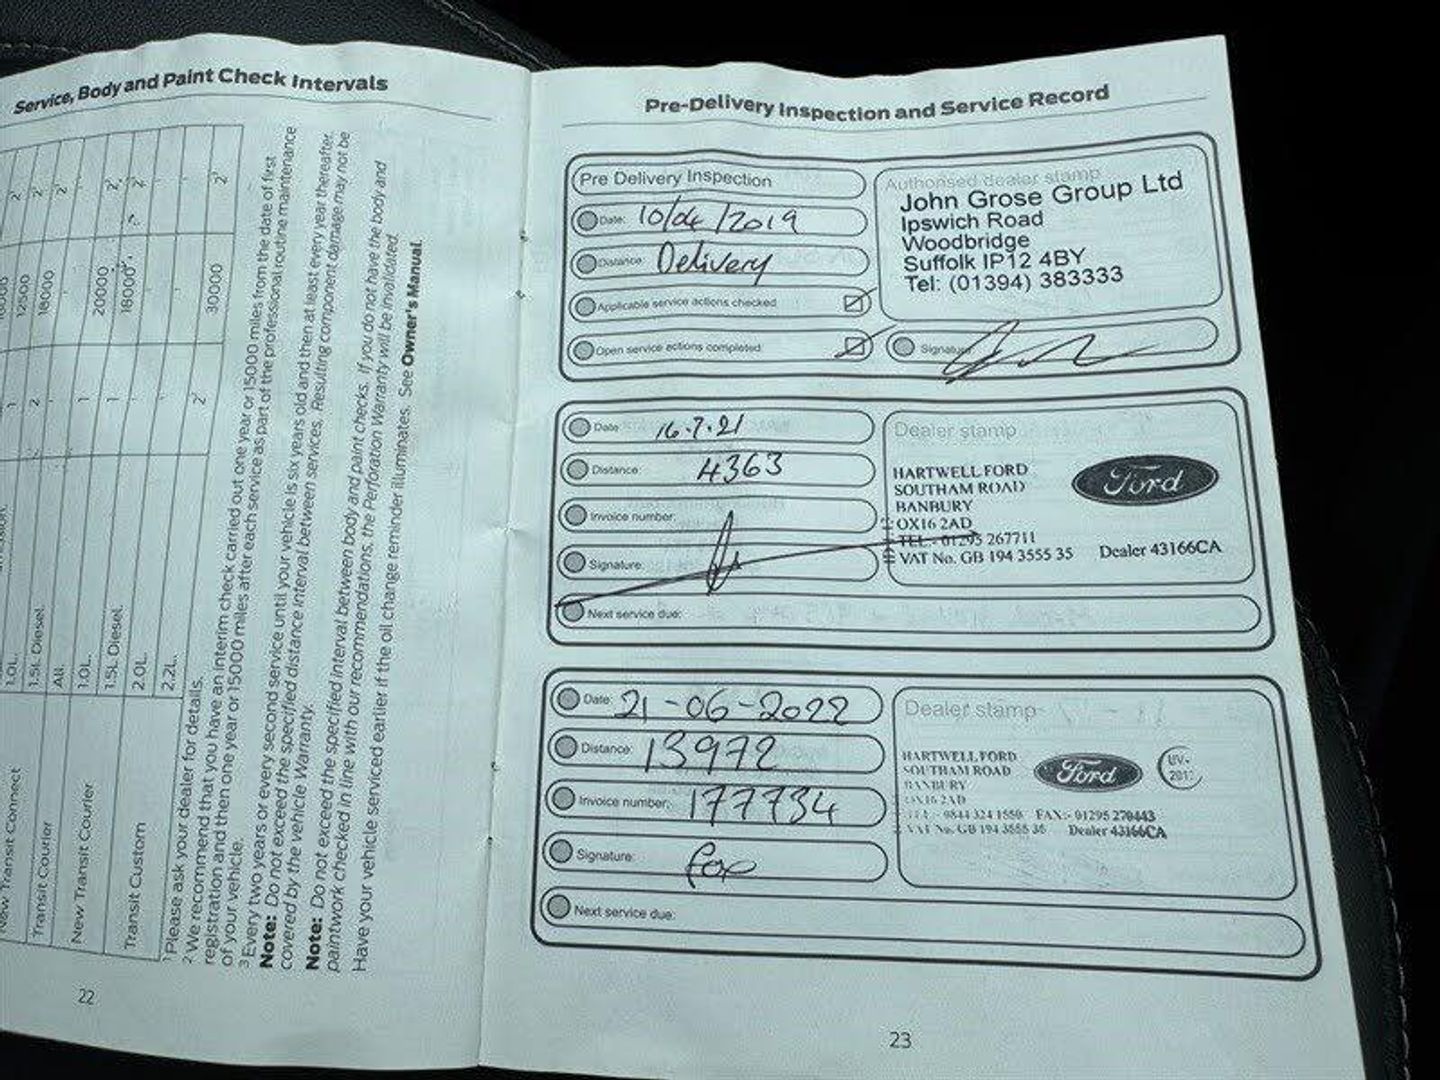 Service, Body and Paint Check Intervals
12500 2
1.5L Diesel 2 18000 2
All
1.0L. 1 20000
1.5L Diesel. 1 18000 2
2.0L.
2.2L. 2 30000 2
New Transit Connect
Transit Courier
New Transit Courier
Transit Custom
1 Please ask your dealer for details.
2 We recommend that you have an interim check carried out one year or 15000 miles from the date of first
registration and then one year or 15000 miles after each service as part of the professional routine maintenance
of your vehicle.
3 Every two years or every second service until your vehicle is six years old and then at least every year thereafter.
Note: Do not exceed the specified distance interval between services. Resulting component damage may not be
covered by the vehicle Warranty.
Note: Do not exceed the specified interval between body and paint checks. If you do not have the body and
paintwork checked in line with our recommendations, the Perforation Warranty will be invalidated.
Have your vehicle serviced earlier if the oil change reminder illuminates. See Owner's Manual.
22
Pre-Delivery Inspection and Service Record
Pre Delivery Inspection
Date: 10/04/2019
Distance: Delivery
Applicable service actions checked
Open service actions completed
Authorised dealer stamp
John Grose Group Ltd
Ipswich Road
Woodbridge
Suffolk IP12 4BY
Tel: (01394) 383333
Signature:
Date: 16.7.21
Distance: 4363
Invoice number:
Signature:
Next service due:
Dealer stamp
HARTWELL FORD
SOUTHAM ROAD
BANBURY
OX16 2AD
TEL - 01295 267711
VAT No. GB 194 3555 35 Dealer 43166CA
Ford
Date: 21-06-2022
Distance: 13972
Invoice number: 177734
Signature:
Next service due:
Dealer stamp
HARTWELL FORD
SOUTHAM ROAD
BANBURY
OX16 2AD
TEL - 0844 324 1550 FAX:- 01295 270443
VAT No. GB 194 3555 35 Dealer 43166CA
Ford
23